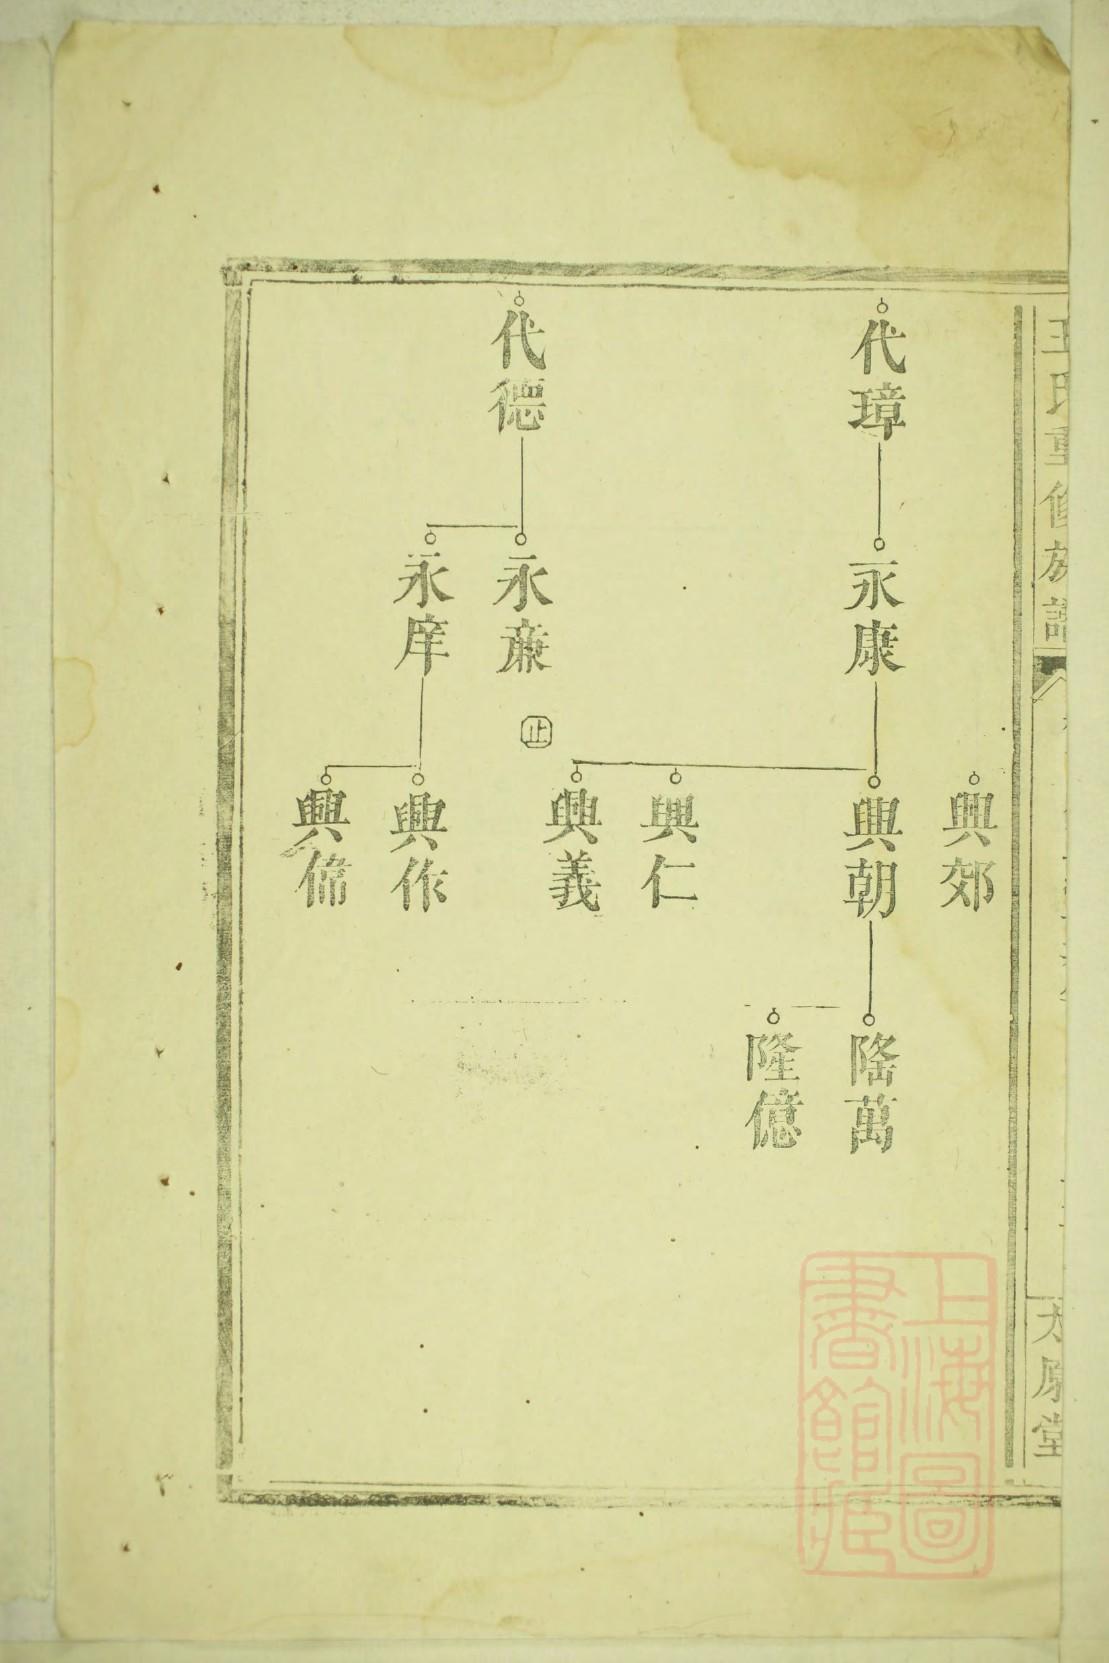 王氏重修族譜
太原堂
興郊
代璋
永康
興朝
興仁
興義
隆萬
隆億
代德
永亷
止
永庠
興作
上海圖
書館藏